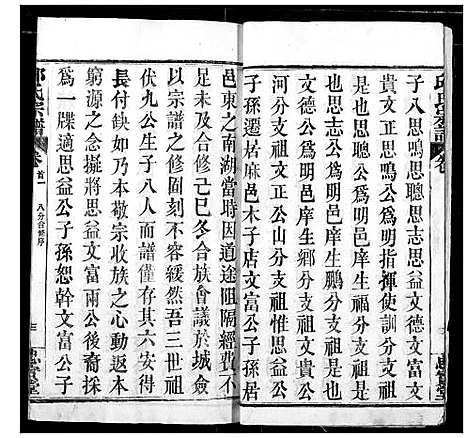 子八思聰思忠思志思益文德文富文
貴文正思鳴公爲明指揮使訓分支祖
是也思聰公爲明庠生福分支祖是
也思志公爲明庠生鵬分支祖是也
文德公爲明庠生鄉分支祖文貴公
河分支祖文正公山分支祖惟思益公
子孫遷居麻邑木子店文富公子孫居
邑東之南湖當時因道途阻隔經費不
足未及合修己巳冬合族會議於城僉
以宗譜之修刻不容緩然吾三世祖
伏九公生子八人而譜僅存其六安得
長付缺如乃本敬宗收族之心動返本
窮源之念擬將思益文富兩公後裔採
爲一牒適思益公子孫恕幹文富公子
邱氏宗譜
卷首一
八分合修序